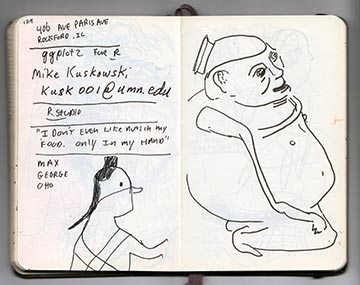 129
406 AVE PARIS AVE
ROCKFORD, IL
ggplot2 FOR R
Mike Kuskowski
Kusk001@umn.edu
R STUDIO
"I DON'T EVEN LIKE NUTS IN MY
FOOD. ONLY IN MY HAND"
MAX
GEORGE
OHO